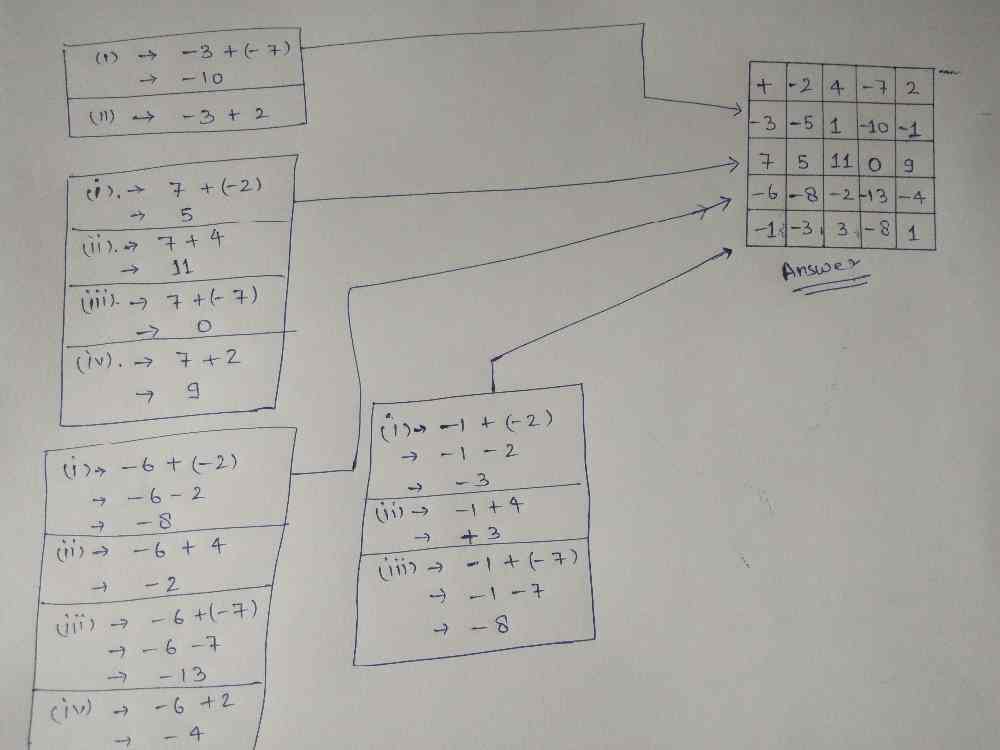 (i) → -3 + (-7)
→ -10
(ii) → -3 + 2
(i). → 7 + (-2)
→ 5
(ii). → 7 + 4
→ 11
(iii). → 7 + (-7)
→ 0
(iv). → 7 + 2
→ 9
(i) → -6 + (-2)
→ -6 - 2
→ -8
(ii) → -6 + 4
→ -2
(iii) → -6 + (-7)
→ -6 - 7
→ -13
(iv) → -6 + 2
→ -4
(i) → -1 + (-2)
→ -1 - 2
→ -3
(ii) → -1 + 4
→ +3
(iii) → -1 + (-7)
→ -1 - 7
→ -8
+ -2 4 -7 2
-3 -5 1 -10 -1
7 5 11 0 9
-6 -8 -2 -13 -4
-1 -3 3 -8 1
Answer